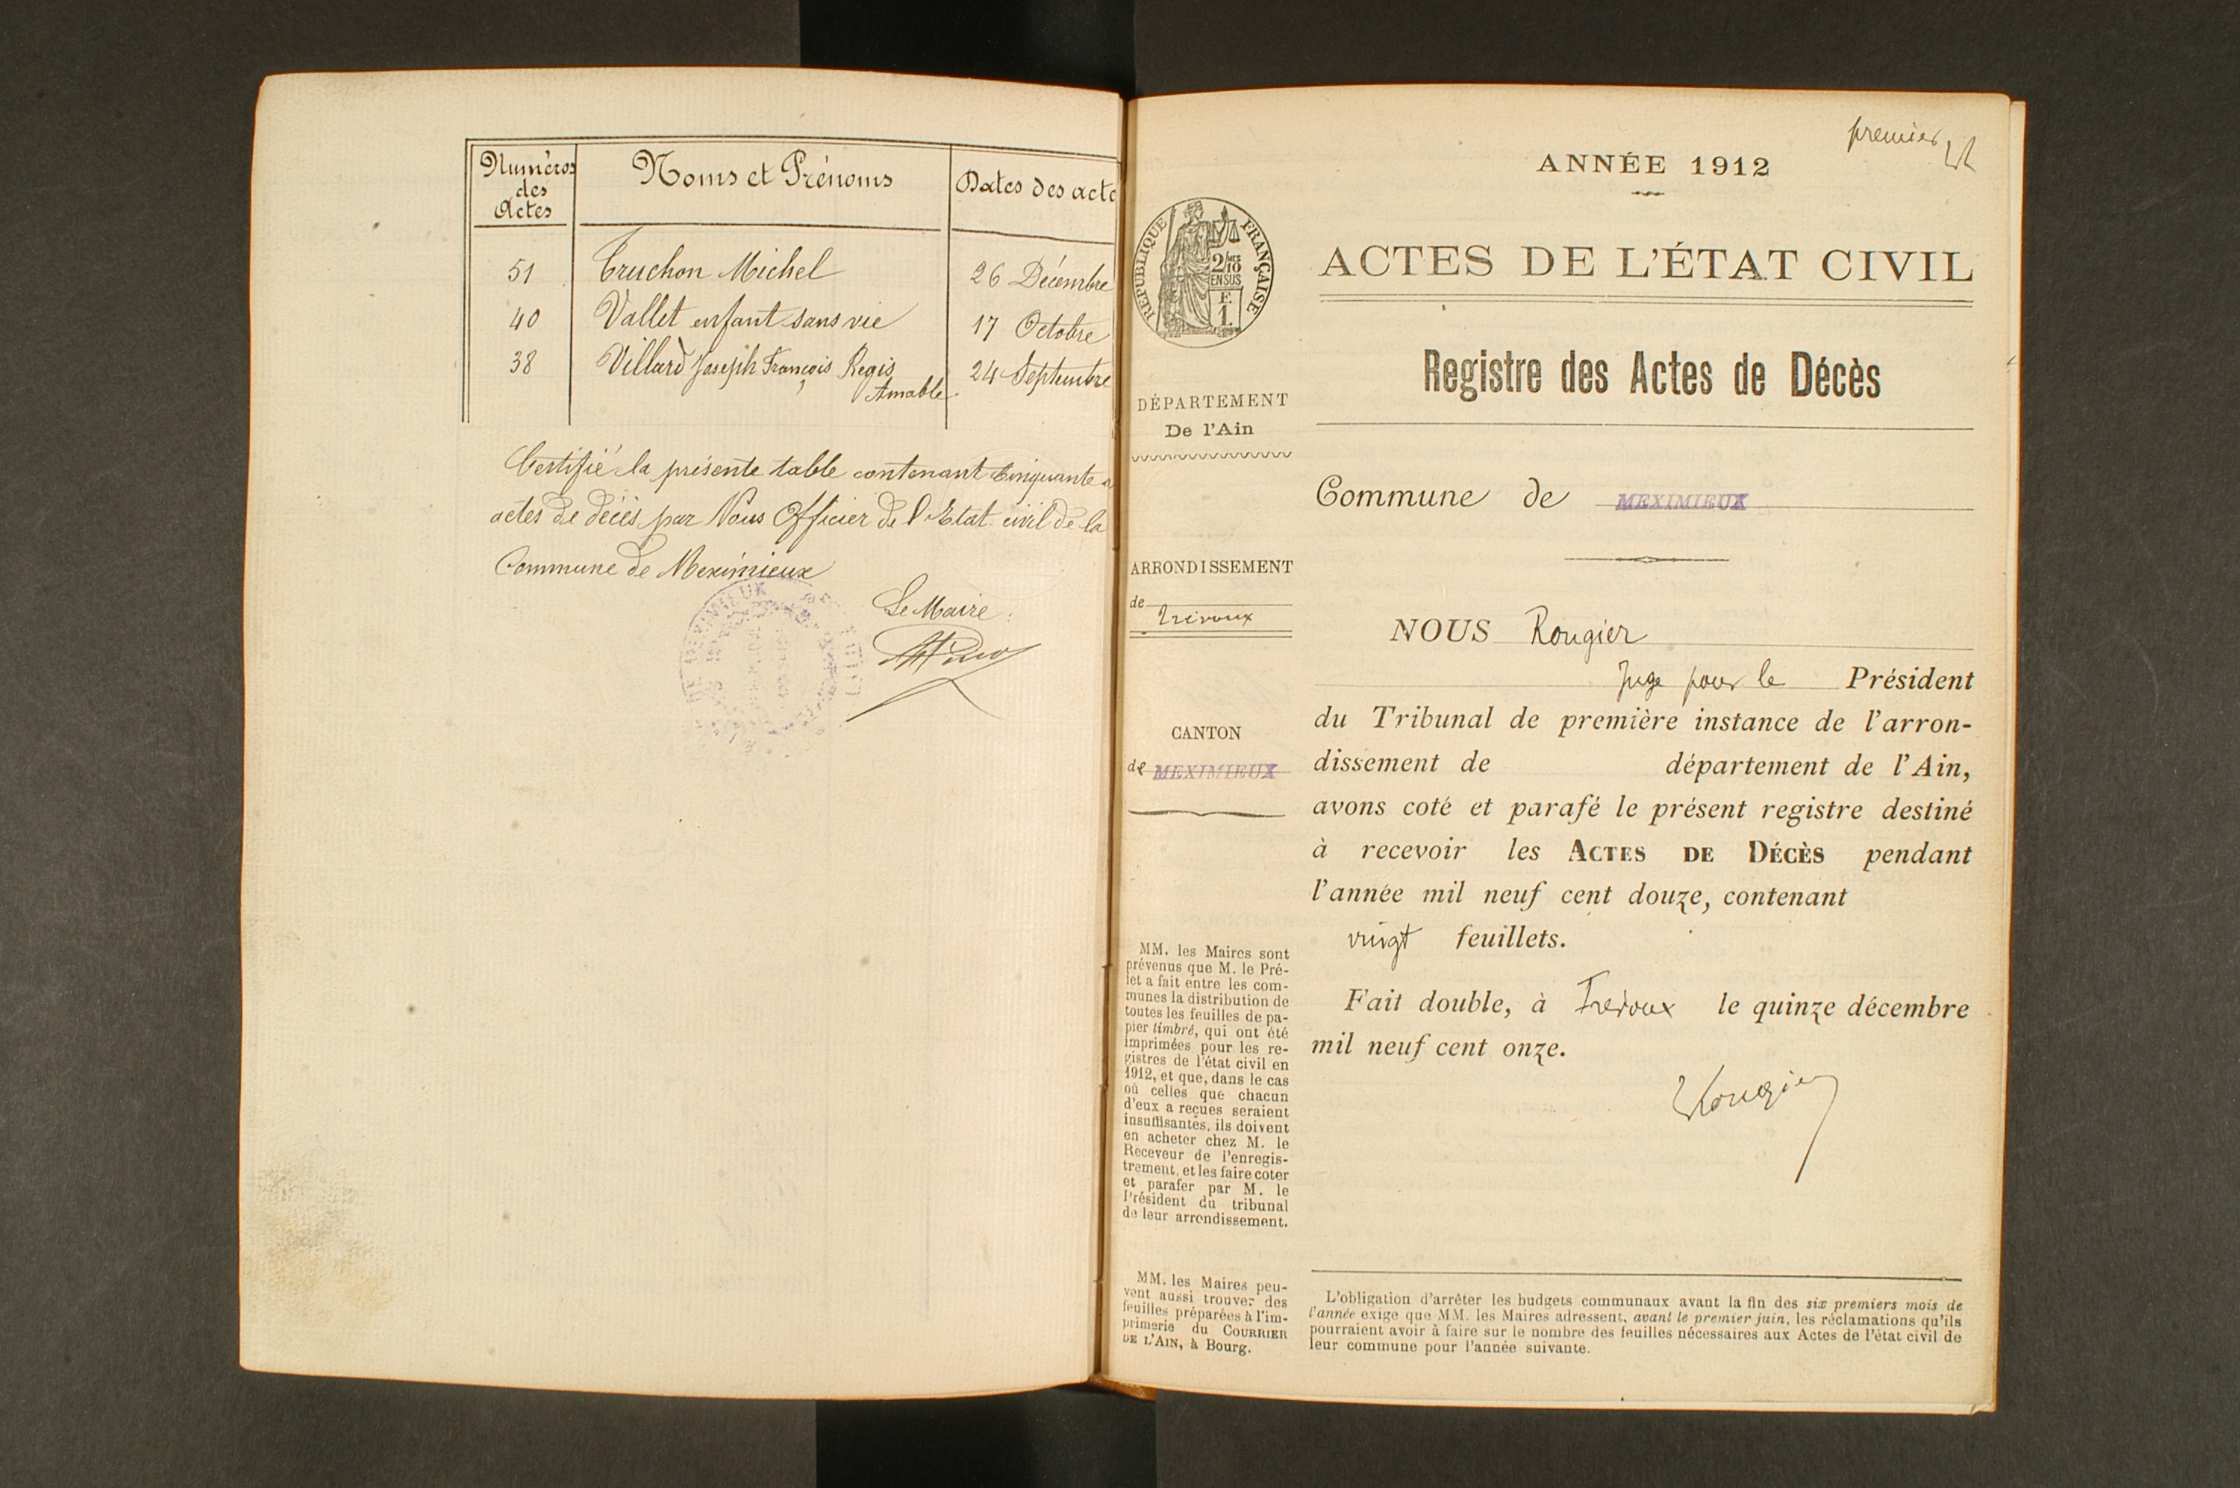 Numéros
des
Actes
Noms et Prénoms
Dates des acte
51 Truchon Michel 26 Décembre
40 Vallet enfant sans vie 17 Octobre
38 Villard Joseph François Regis 24 Septembre
Amable
Certifié la présente table contenant Cinquante
actes de décès par Nous Officier de l'Etat civil de la
Commune de Meximieux
Le Maire:
premier
ANNÉE 1912
RÉPUBLIQUE FRANÇAISE
2/10
EN SUS
F.
1.
ACTES DE L'ÉTAT CIVIL
Registre des Actes de Décès
DÉPARTEMENT
De l'Ain
Commune de MEXIMIEUX
ARRONDISSEMENT
de Trévoux
CANTON
de MEXIMIEUX
NOUS Rougier
Juge pour le Président
du Tribunal de première instance de l'arron-
dissement de département de l'Ain,
avons coté et parafé le présent registre destiné
à recevoir les ACTES DE DÉCÈS pendant
l'année mil neuf cent douze, contenant
vingt feuillets.
Fait double, à Trévoux le quinze décembre
mil neuf cent onze.
Rougier
MM. les Maires sont
prévenus que M. le Pré-
fet a fait entre les com-
munes la distribution de
toutes les feuilles de pa-
pier timbré, qui ont été
imprimées pour les re-
gistres de l'état civil en
1912, et que, dans le cas
où celles que chacun
d'eux a reçues seraient
insuffisantes, ils doivent
en acheter chez M. le
Receveur de l'enregis-
trement, et les faire coter
et parafer par M. le
Président du tribunal
de leur arrondissement.
MM. les Maires peu-
vent aussi trouver des
feuilles préparées à l'im-
primerie du COURRIER
DE L'AIN, à Bourg.
L'obligation d'arrêter les budgets communaux avant la fin des six premiers mois de
l'année exige que MM. les Maires adressent, avant le premier juin, les réclamations qu'ils
pourraient avoir à faire sur le nombre des feuilles nécessaires aux Actes de l'état civil de
leur commune pour l'année suivante.